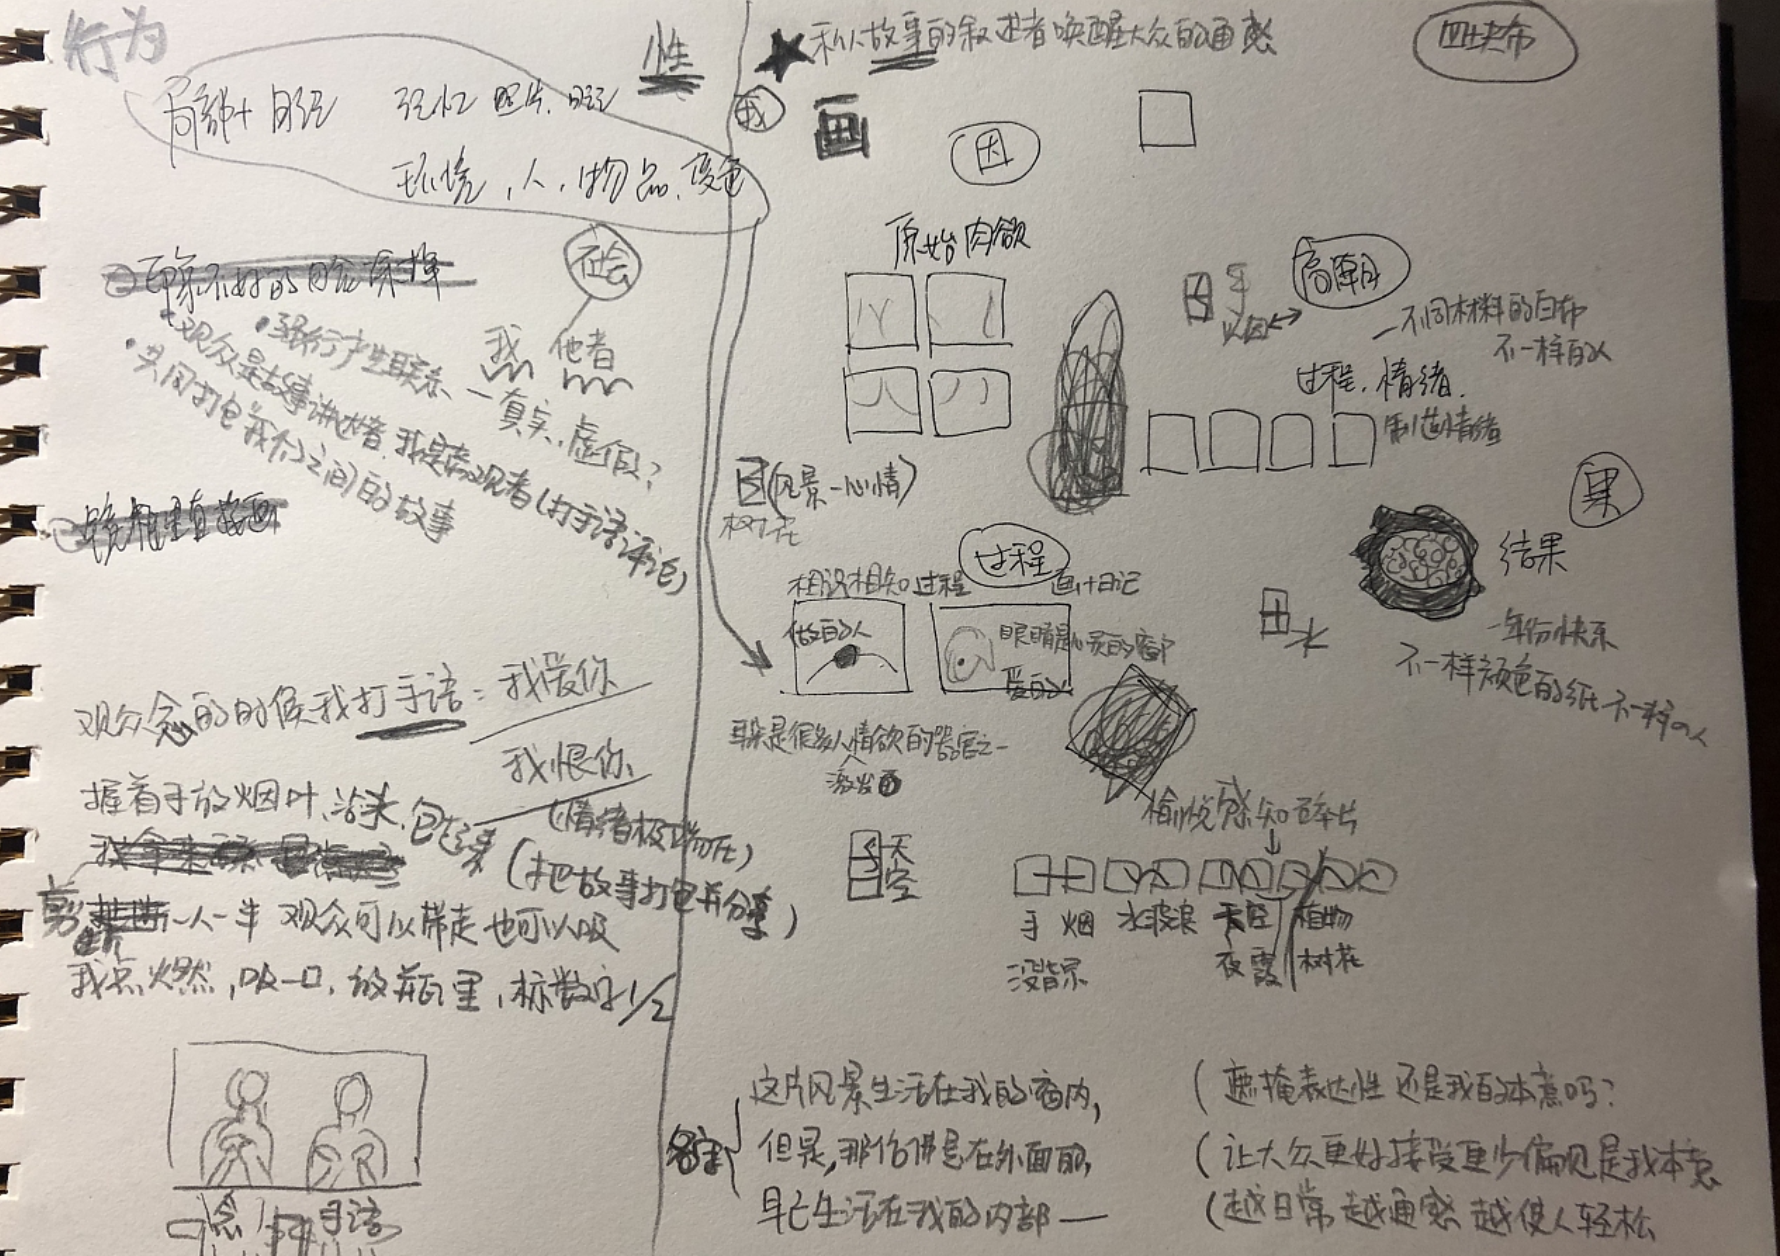 行为
性
局部+日记 记忆 照片、日记
环境，人，物品、变色
社会
我 他者
强行产生联系 — 真实、虚假？
观众是故事讲述者，我是旁观者(打手语评论)
共同打包我们之间的故事
观众念的时候我打手语：我爱你
我恨你
(情绪极端化)
握着手放烟叶、沾来、包起来
(把故事打包并分享)
剪 一人一半 观众可以带走也可以吸
我点燃，吸一口，放瓶里，标数字1/2
念 手语
★ 私人故事的叙述者唤醒大众的通感
四块布
我
画
因
原始肉欲
(风景—心情)
树花
高潮
一不同材料的白布
不一样的人
过程、情绪
制造情绪
果
结果
一年份快乐
不一样颜色的纸 不一样的人
水
过程
相识相知过程
画+日记
做的人
眼睛是心灵的窗户
爱的人
耳朵是很多人情欲的器官之一
激发
愉悦感知碎片
天空
手 烟 水波浪 天空 植物
没背景 夜霞 树花
这片风景生活在我的窗内，
但是，那仿佛是在外面的，
早已生活在我的内部 —
(遮掩表达性 还是我的本意吗？
(让大众更好接受更少偏见是我本意
(越日常 越通感 越使人轻松